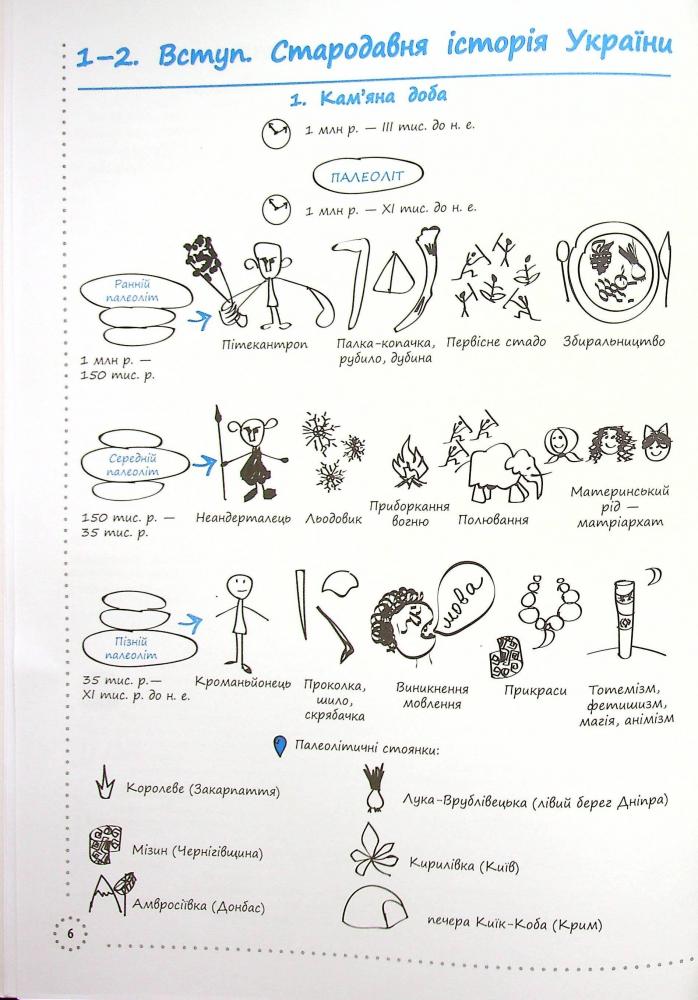 1–2. Вступ. Стародавня історія України
1. Кам'яна доба
1 млн р. — III тис. до н. е.
ПАЛЕОЛІТ
1 млн р. — XI тис. до н. е.
Ранній
палеоліт
1 млн р. —
150 тис. р.
Пітекантроп
Палка-копачка,
рубило, дубина
Первісне стадо
Збиральництво
Середній
палеоліт
150 тис. р. —
35 тис. р.
Неандерталець
Льодовик
Приборкання
вогню
Полювання
Материнський
рід —
матріархат
Пізній
палеоліт
35 тис. р.—
XI тис. р. до н. е.
Кроманьйонець
Проколка,
шило,
скрябачка
мова
Виникнення
мовлення
Прикраси
Тотемізм,
фетишизм,
магія, анімізм
Палеолітичні стоянки:
Королеве (Закарпаття)
Лука-Врублівецька (лівий берег Дніпра)
Мізин (Чернігівщина)
Кирилівка (Київ)
Амвросіївка (Донбас)
печера Киїк-Коба (Крим)
6